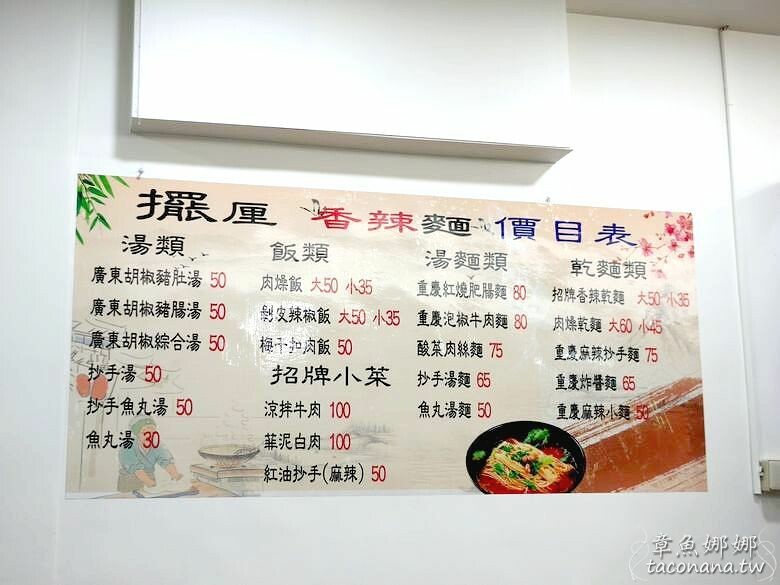 擺厘 香辣麵 價目表
湯類
廣東胡椒豬肚湯 50
廣東胡椒豬腸湯 50
廣東胡椒綜合湯 50
抄手湯 50
抄手魚丸湯 50
魚丸湯 30
飯類
肉燥飯 大50 小35
剝皮辣椒飯 大50 小35
梅干扣肉飯 50
招牌小菜
涼拌牛肉 100
蒜泥白肉 100
紅油抄手(麻辣) 50
湯麵類
重慶紅燒肥腸麵 80
重慶泡椒牛肉麵 80
酸菜肉絲麵 75
抄手湯麵 65
魚丸湯麵 50
乾麵類
招牌香辣乾麵 大50 小35
肉燥乾麵 大60 小45
重慶麻辣抄手麵 75
重慶炸醬麵 65
重慶麻辣小麵 50
章魚娜娜
taconana.tw